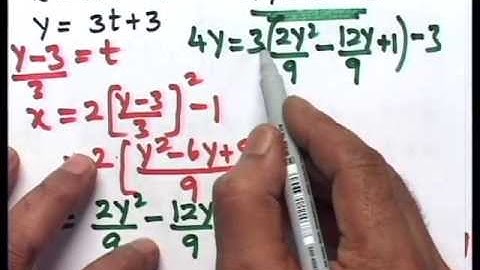 y = 3t+3
y-3/3 = t
x = 2[y-3/3]²-1
= 2[y²-6y+9/9
= 2y²/9 - 12y/9
4y = 3(2y²/9 - 12y/9 + 1) - 3